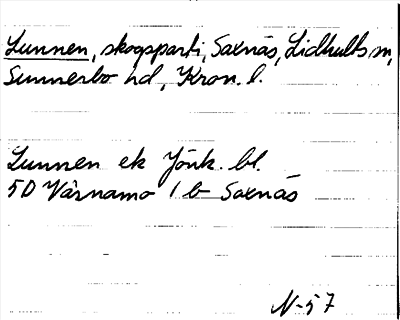 Lunnen, skogsparti, Saxnäs, Lidhults sn,
Sunnerbo hd, Kron. l.
Lunnen ek Jönk. bl.
5D Värnamo 1 b Saxnäs
N-57